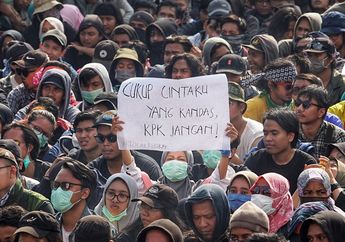 CUKUP CINTAKU
YANG KANDAS,
KPK JANGAN!